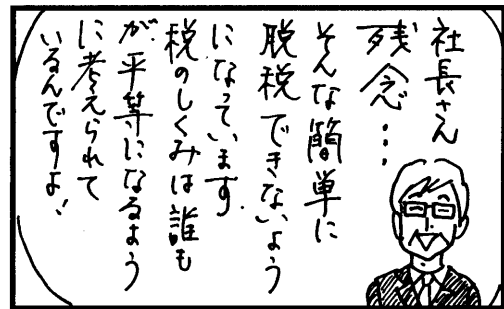 社長さん
残念…
そんな簡単に
脱税できないよう
になっています
税のしくみは誰も
が平等になるよう
に考えられて
いるんですよ！